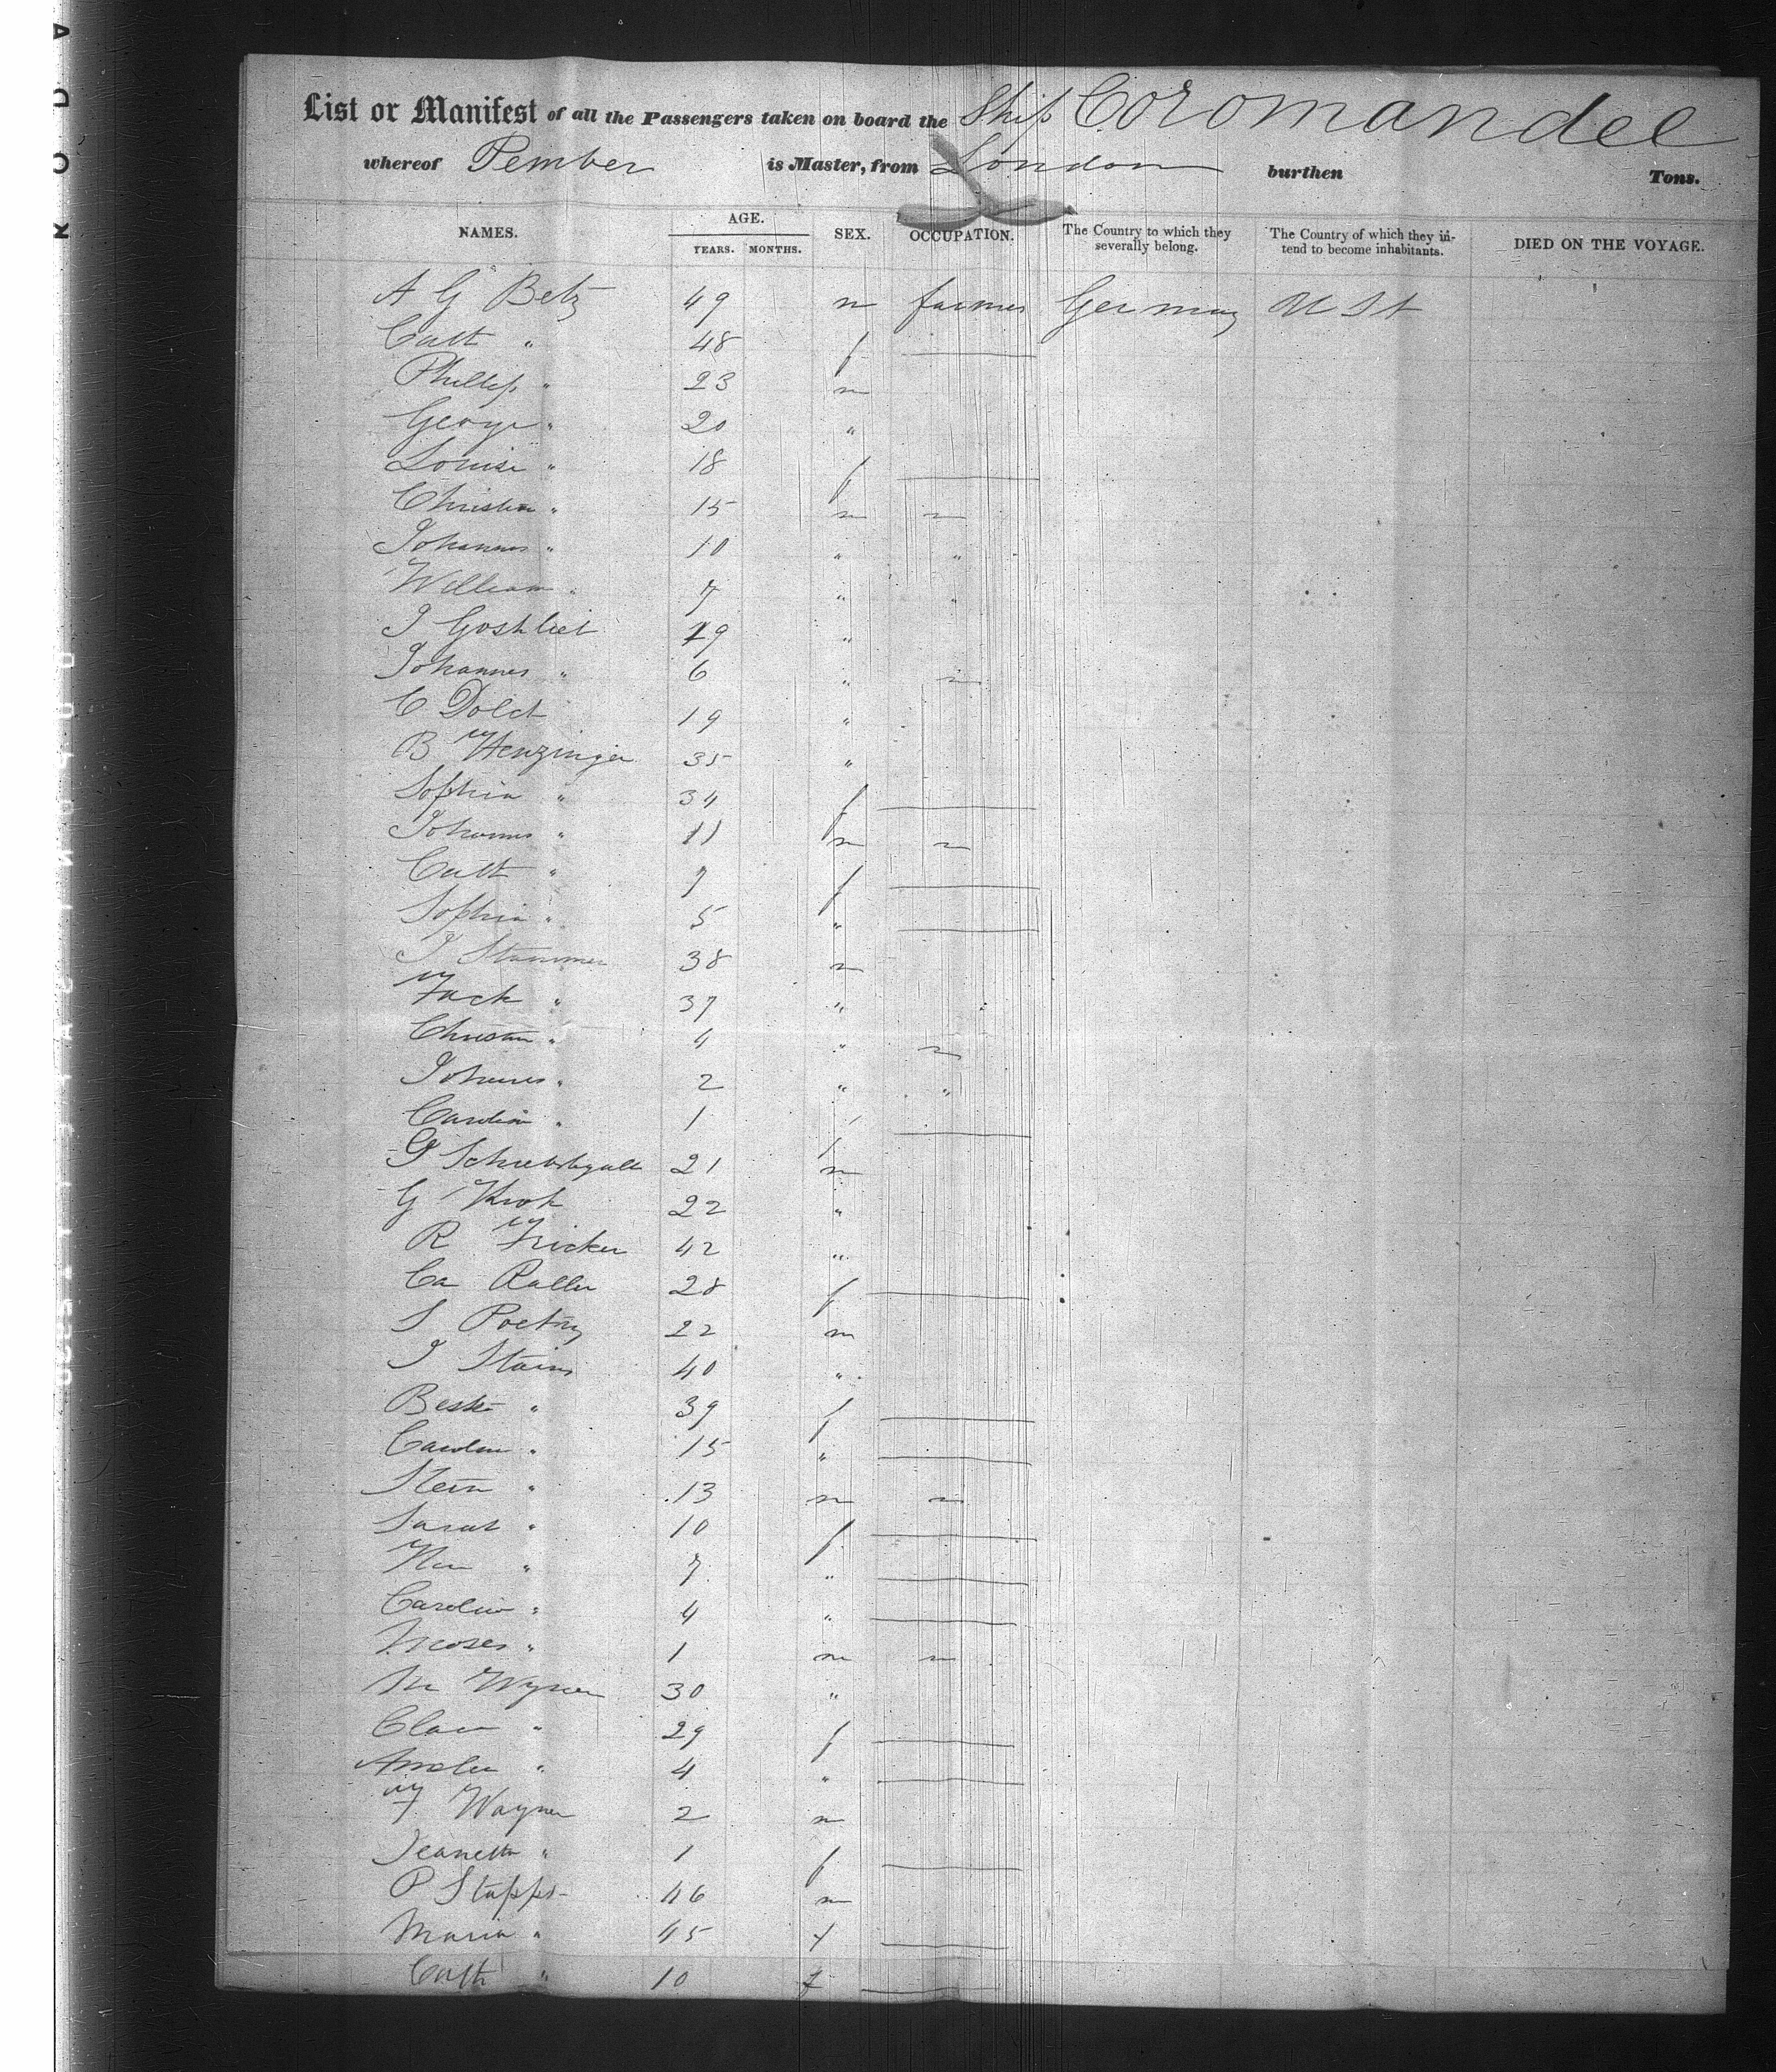 List or Manifest of all the Passengers taken on board the Ship Coromandel
whereof Pember is Master, from London burthen Tons.
NAMES. AGE. YEARS. MONTHS. SEX. OCCUPATION. The Country to which they severally belong. The Country of which they intend to become inhabitants. DIED ON THE VOYAGE.
A G Betz 49 m farmer Germany U St
Cath " 48 f
Phillip " 23 m
George " 20 "
Louise " 18 f
Christian " 15 m
Johannes " 10 " "
William " 7 " "
J Goshliet 19 "
Johannes " 6 "
C Dolch 19 "
B Henzinger 35 "
Sophia " 34 f
Johannes " 11 m
Cath " 7 f
Sophia " 5 "
J Stammer 38 m
" 37 "
Christian " 4 "
Johannes " 2 " "
Carolin " 1 f
21 m
G Krok 22 "
R Fricker 42 "
Ca 28 f
S 22 m
J Stain 40 "
" 39 f
Carolin " 15 "
" 13 m
Sarah " 10 f
" 7 "
Carolin " 4 "
Moses " 1 m
30 "
" 29 f
" 4 "
F Wagner 2 m
Jeaneth " 1 f
P 46 m
Maria " 45 f
Cath " 10 f